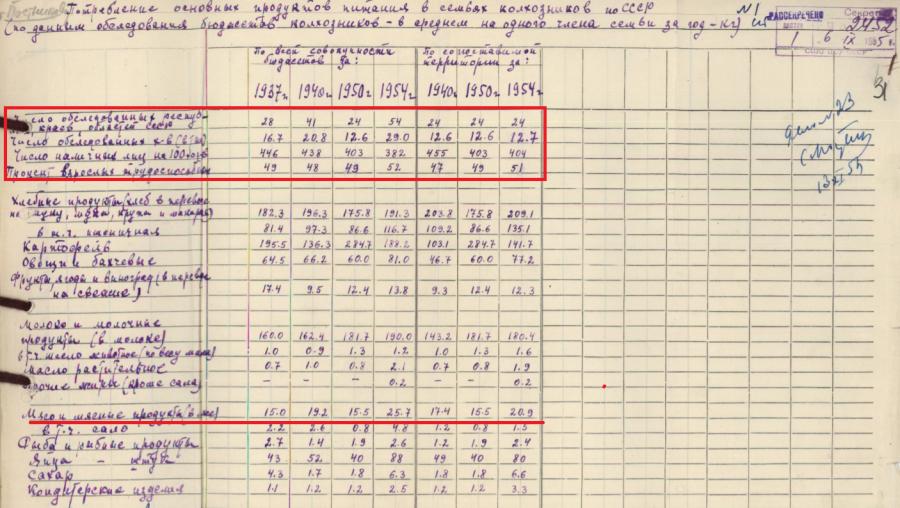 Потребление основных продуктов питания в семьях колхозников по СССР
(по данным обследования бюджетов колхозников - в среднем на одного члена семьи за год - кг)
N1
РАССЕКРЕЧЕНО
Секретно
2452
1 6 IX 1955 г.
31
По всей совокупности бюджетов за:
По сопоставимой территории за:
1937 г. 1940 г. 1950 г. 1954 г. 1940 г. 1950 г. 1954 г.
Число обследованных респуб-
лик, краев, областей СССР 28 41 24 54 24 24 24
Число обследованных х-в (в тыс) 16.7 20.8 12.6 29.0 12.6 12.6 12.7
Число наличных лиц на 100 х-в 446 438 403 382 455 403 404
Процент взрослых трудоспособных 49 48 49 52 47 49 51
Хлебные продукты (хлеб в переводе
на муку, мука, крупа и макароны) 182.3 196.3 175.8 191.3 203.8 175.8 209.1
в т.ч. пшеничная 81.4 97.3 86.6 116.7 109.2 86.6 135.1
Картофель 195.5 136.3 284.7 188.2 103.1 284.7 141.7
Овощи и бахчевые 64.5 66.2 60.0 81.0 46.7 60.0 77.2
Фрукты, ягоды и виноград (в переводе
на свежие) 17.4 9.5 12.4 13.8 9.3 12.4 12.3
Молоко и молочные
продукты (в молоке) 160.0 162.4 181.7 190.0 143.2 181.7 180.4
в т.ч. масло животное (по весу масла) 1.0 0.9 1.3 1.2 1.0 1.3 1.6
Масло растительное 0.7 1.0 0.8 2.1 0.7 0.8 1.9
Прочие жиры (кроме сала) - - - 0.2 - - 0.2
Мясо и мясные продукты (в мясе) 15.0 19.2 15.5 25.7 17.4 15.5 20.9
в т.ч. сало 2.2 2.6 0.8 4.8 1.2 0.8 1.3
Рыба и рыбные продукты 2.7 1.4 1.9 2.6 1.2 1.9 2.4
Яйца - штук 43 52 40 88 49 40 80
Сахар 4.3 1.7 1.8 6.3 1.8 1.8 6.6
Кондитерские изделия 1.1 1.2 1.2 2.5 1.2 1.2 3.3